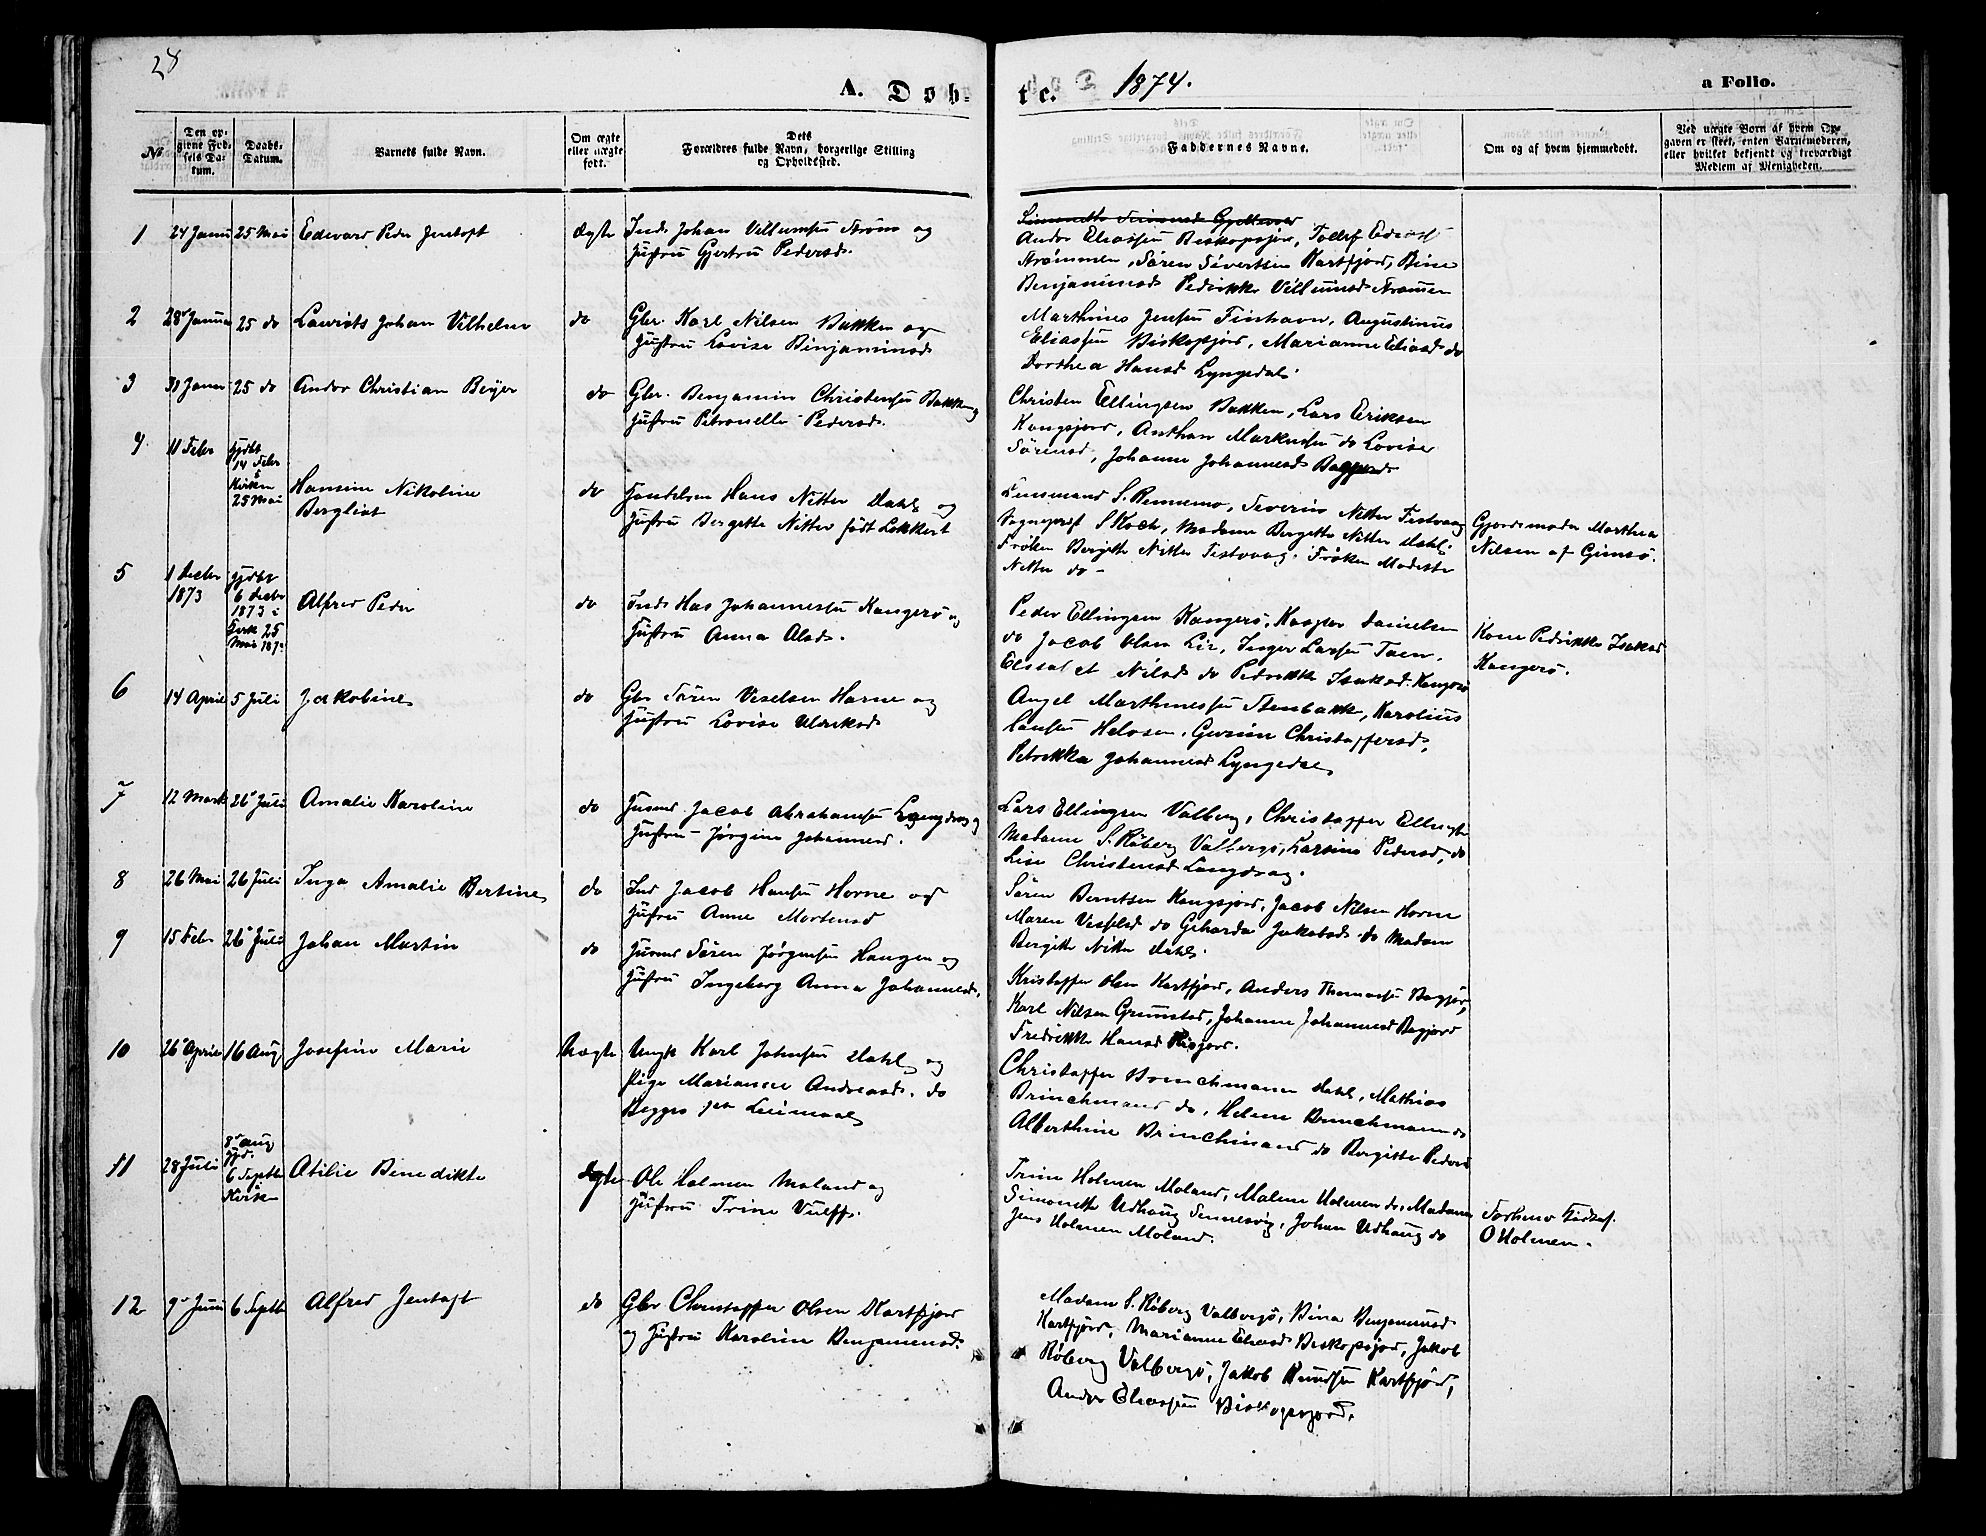 28
A. Døb-
te. 1874.
a Folio.
No
Den op-
givne Fød-
sels Da-
tum.
Daabs-
Datum.
Barnets fulde Navn.
Om ægte
eller uægte
født.
Dets
Forældres fulde Navn, borgerlige Stilling
og Opholdssted.
Faddernes Navne.
Om og af hvem hjemmedøbt.
Ved uægte Børn af hvem Op-
gaven er skeet, enten Barnemoderen,
eller hvilket bekjendt og troværdigt
Medlem af Menigheden.
1 24 Janu 25 Mai Edevard Peder Jentoft Ægte Inds Johan Villumsen Strøm og
Hustru Gjertru Pedersd.
Andor Eliassen Biskopsjor, Tollef
Strømmen, Sören Sivertsen Kartfjord, Bine
Benjaminsd Pedrikke Villumsd Strømen
2 28 Janua 25 do Laurits Johan Vilhelm do Gbr. Karl Nilsen Bakken og
Hustru Lovise Binjaminsd
Marthines Jensen Finhavn, Augustinus
Eliassen Biskopsjord, Marianne Eliasd do
Dorthea Hansd Lyngedal.
3 31 Janu 25 do Andor Christian Beyer do Gbr. Benjamin Christensen Bakken og
Hustru Petronelle Pedersd.
Christen Ellingsen Bakken, Lars Eriksen
Kongsjord, Anthon Markussen do Lovise
Sörensd, Johanne Johannesd
4 11 Febr hjdbt
14 Febr
i
Kirken
25 Mai
Hansine Nikoline
Bergliot
do Handelsm Hans Nitter Dahl og
Hustru Bergette Nitter født Lekkert
Lensmand S. Rennemo, Severin Nitter Festvaag
Sogneprest S Koch, Madame Bergette Nitter Dahl.
Frøken Bergitte Nitter Festvaag. Frøken Modeste
Nitter do -
Gjordemoder Marthea
Nilsen af Gimsö.
5 1 Decbr
1873
hjdbt
6 Decbr
1873 i
Kirk 25
Mai 187
Alfred Peder do Inds Has Johannessen Kangerö og
Hustru Anna Olsd.
Peder Ellingsen Kangerö, Kasper Danielsen
do Jacob Olsen Lie, Inger Larsen Toen.
Elsabet Nilsd do Pedrikke Isaksd Kangerö
Kone Pedrikke Isaksd
Kangerö.
6 14 April 5 Juli Jakobine do Gbr Sören Veselsen Horne og
Hustru Lovise Ulriksd
Angel Marthinessen Stenbakk, Karolius
Hansen Helosen, Gurine Christoffersd,
Petrikka Johannesd Lyngedal
7 12 Marts 26 Juli Amalie Karoline do Husmd Jacob Abrahamsen Langdrag og
Hustru Jörgine Johannesd.
Lars Ellingsen Valberg, Christoffer Ellingsen
Madame S. Röberg Valbergö, Larsine Pedersd, do
Lise Christensd Langdrag.
8 26 Mai 26 Juli Inga Amalie Bertine do Ind Jacob Hansen Horne og
Hustru Anne Mortensd
Sören Berntsen Kongsjord, Jacob Nilsen Horne
Maren Veselsd do Geharda Jakobsd do Madam
Bergitte Nitter Dahl.
9 15 Febr 26 Juli Johan Martin do Husmd Sören Jörgensen Haugen og
Hustru Ingeborg Anna Johannesd.
Kristoffer Olsen Kartfjord, Anders Thomassen Bogjor,
Karl Nilsen Grimstad, Johanne Johannesd Bogjord
Fredrikke Hansd
10 26 April 16 Aug Josefine Marie Uægte Ungk Karl Johnsen Dahl og
Pige Marianne Andreasd. do
Begges 1ste Leiermaal
Christoffer Brinchmann Dahl, Mathias
Brinchmann do, Helene Brinchmann do
Alberthine Brinchmann do Bergitte Peders
11 28 Juli 8 Aug
hjd.
6 Septb
Kirk
Otilie Benedikte Ægte Ole Holmen Moland og
Hustru Trine Vulff.
Trine Holmen Moland, Malene Holmen do, Madame
Simonette Udhaug Sennesvig, Johan Udhaug do
Jens Holmen Moland.
O Holmen.
12 9 Juni 6 Septb Alfred Jentoft do Gbr Christoffer Olsen Kartfjord
og Hustru Karoline Benjaminsd.
Madam S. Röberg Valbergö, Bina Benjaminsd
Kartfjord, Marianne Eliasd Biskopsjord, Jakob
Röberg Valbergö, Jakob Knudsen Kartfjord,
Andor Eliassen Biskopsjord.